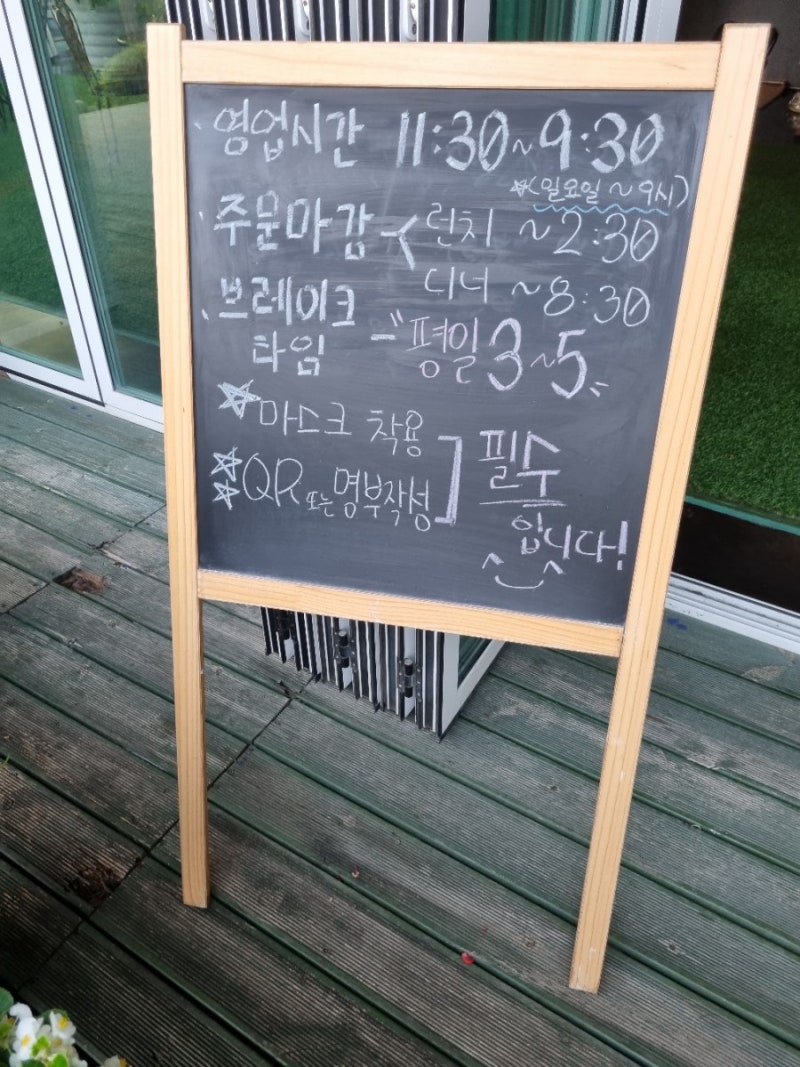 영업시간 11:30~9:30
☆(일요일 ~ 9시)
주문마감 < 런치 ~2:30
디너 ~8:30
브레이크
타임 - "평일 3~5"
☆마스크 착용
☆☆QR 또는 명부작성] 필수
입니다!
^‿^